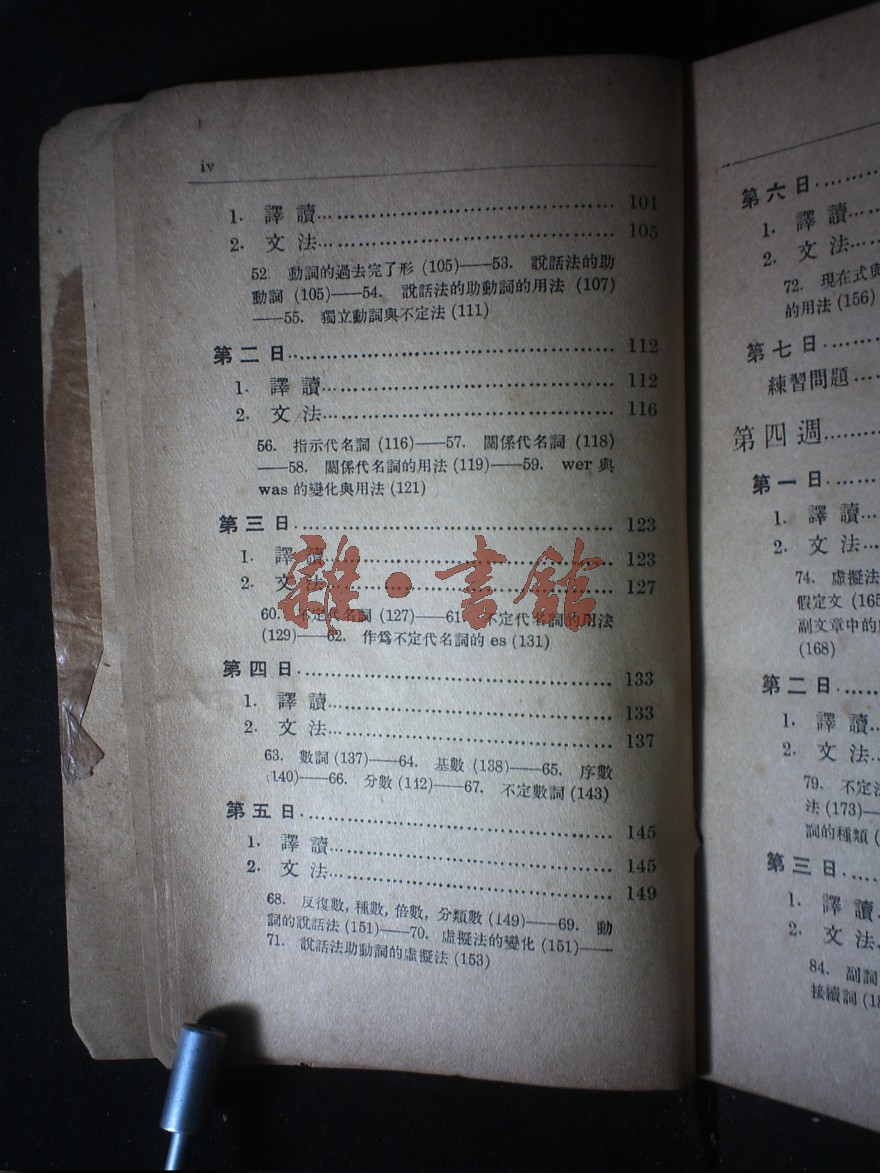 iv
1. 譯 讀 101
2. 文 法 105
52. 動詞的過去完了形 (105)——53. 說話法的助
動詞 (105)——54. 說話法的助動詞的用法 (107)
——55. 獨立動詞與不定法 (111)
第 二 日 112
1. 譯 讀 112
2. 文 法 116
56. 指示代名詞 (116)——57. 關係代名詞 (118)
——58. 關係代名詞的用法 (119)——59. wer 與
was 的變化與用法 (121)
第 三 日 123
1. 譯 讀 123
2. 文 法 127
60. 不定代名詞 (127)——61. 不定代名詞的用法
(129)——62. 作爲不定代名詞的 es (131)
第 四 日 133
1. 譯 讀 133
2. 文 法 137
63. 數詞 (137)——64. 基數 (138)——65. 序數
(140)——66. 分數 (142)——67. 不定數詞 (143)
第 五 日 145
1. 譯 讀 145
2. 文 法 149
68. 反復數, 種數, 倍數, 分類數 (149)——69. 動
詞的說話法 (151)——70. 虛擬法的變化 (151)——
71. 說話法助動詞的虛擬法 (153)
雜·書館
第 六 日
1. 譯 讀
2. 文 法
72. 現在式與
的用法 (156)
第 七 日
練習問題
第 四 週
第 一 日
1. 譯 讀
2. 文 法
74. 虛擬法
假定文 (165
副文章中的
(168)
第 二 日
1. 譯 讀
2. 文 法
79. 不定法
法 (173)—
詞的種類 (
第 三 日
1. 譯 讀
2. 文 法
84. 副詞
接續詞 (18